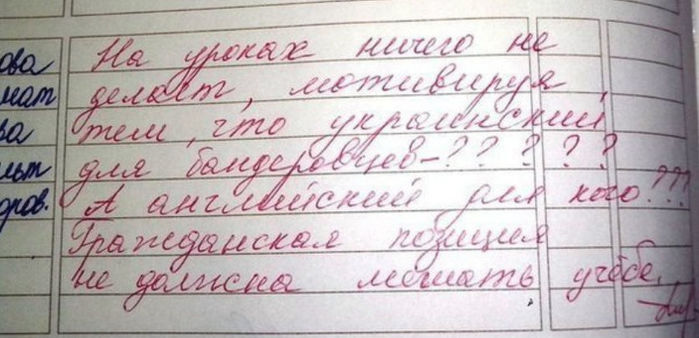 На уроках ничего не
ова
делает, мотивируя
мат
тем, что украинский
ва
для бандеровцев-? ? ? ? ?
льт
А английский для кого???
дров.
Гражданская позиция
не должна мешать учёбе.